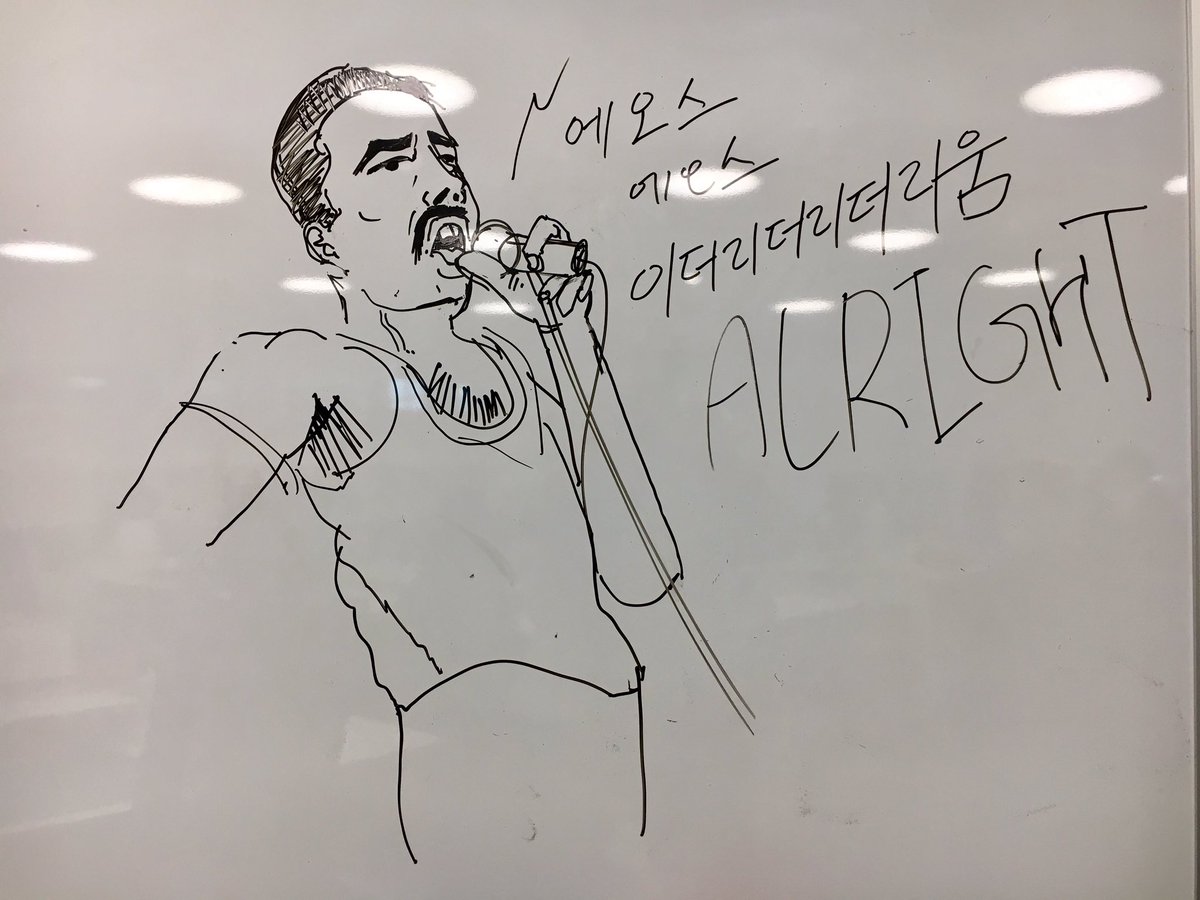 에오스
에오스
이더리더리더라움
ALRIGHT